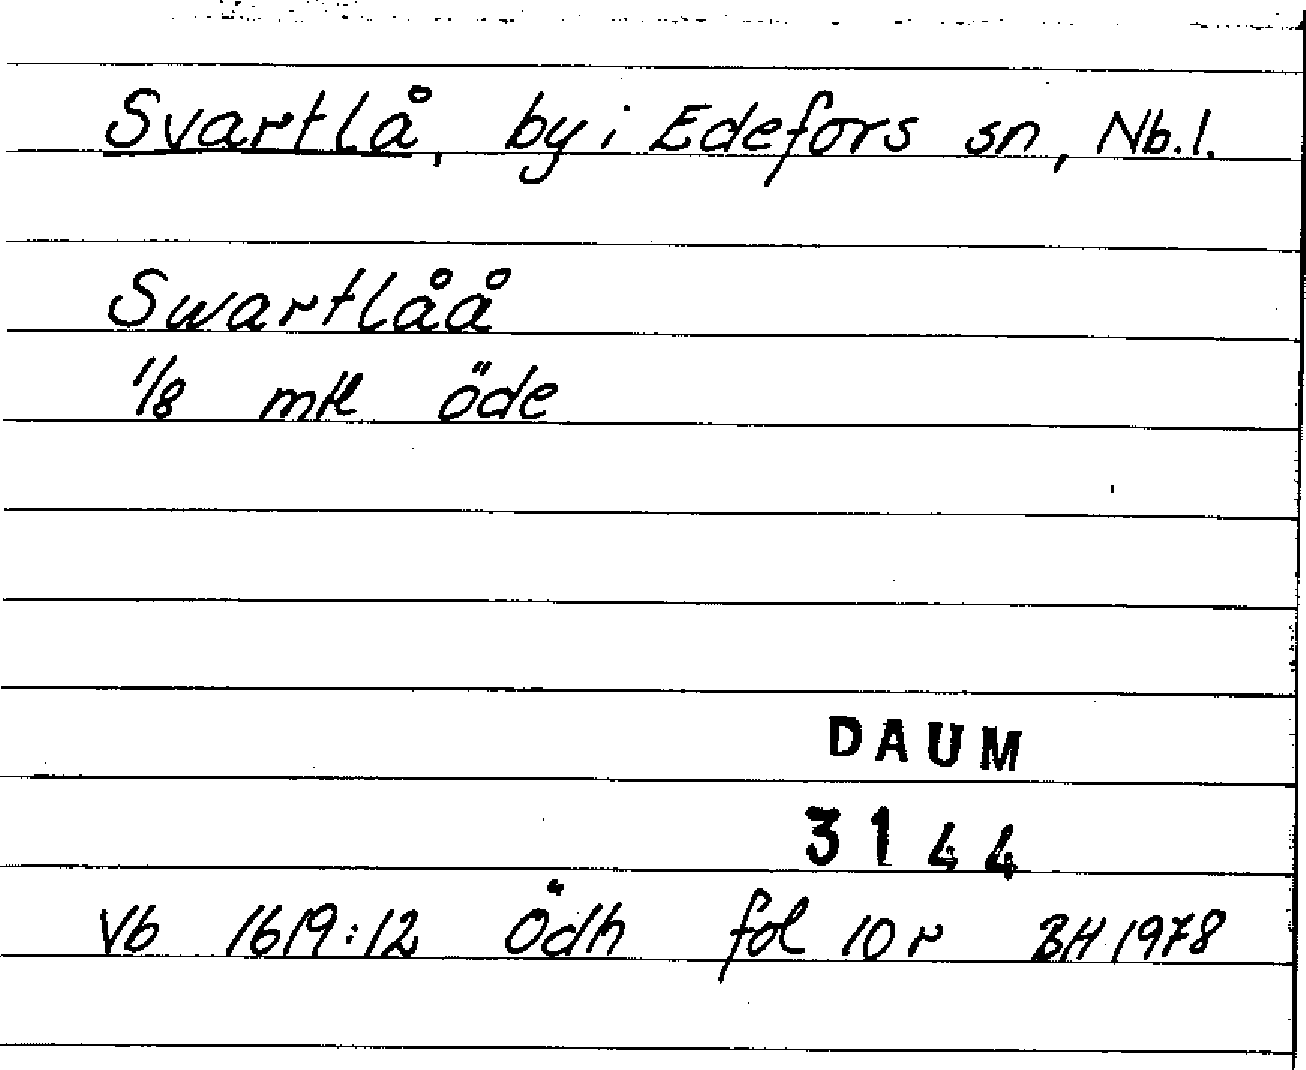 Svartlå, by i Edefors sn, Nb.l.
Swartlåå
1/8 mtl öde
DAUM
3144
Vb 1619:12 Ödh fol 10 r BH 1978